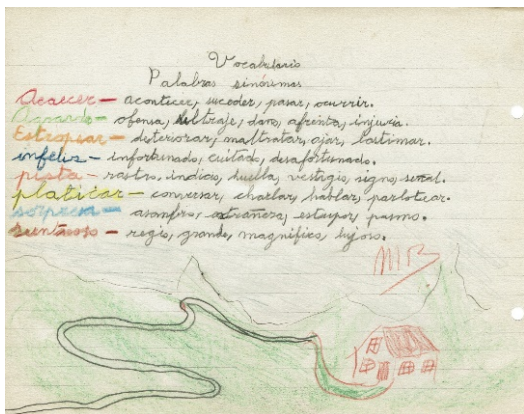 Vocabulario
Palabras sinónimas
Acaecer — acontecer, suceder, pasar, ocurrir.
Agravio — ofensa, ultraje, daño, afrenta, injuria.
Estropear — deteriorar, maltratar, ajar, lastimar.
infeliz — infortunado, cuitado, desafortunado.
pista — rastro, indicio, huella, vestigio, signo, señal.
platicar — conversar, charlar, hablar, parlotear.
sorpresa — asombro, extrañeza, estupor, pasmo.
suntuoso — regio, grande, magnífico, lujoso.
MB